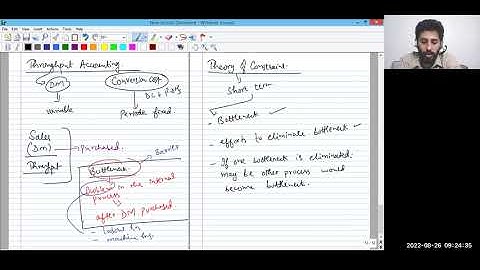 Throughput Accounting
DM
Conversion cost
DL + FOH
variable
Periodic fixed
Sales
(DM) → Purchased.
Thruput
Barrier
Bottleneck
Problem in the internal
process
after DM purchased
- labour hrs
- machine hrs
Theory of Constraint
Short term
- Bottleneck
- efforts to eliminate bottleneck
- If one bottleneck is eliminated
may be other process would
become bottleneck.
2022-08-26 09:24:35